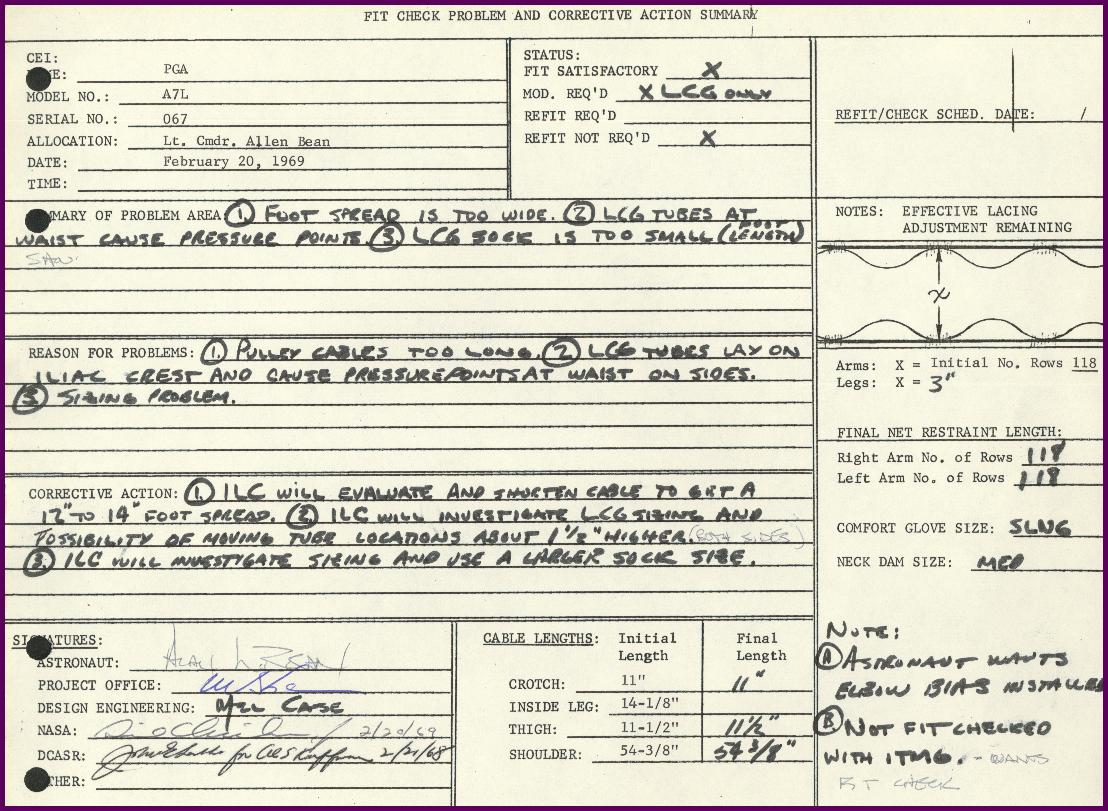 FIT CHECK PROBLEM AND CORRECTIVE ACTION SUMMARY
CEI:
PGA
MODEL NO.: A7L
SERIAL NO.: 067
ALLOCATION: Lt. Cmdr. Allen Bean
DATE: February 20, 1969
TIME:
STATUS:
FIT SATISFACTORY X
MOD. REQ'D X LCG ONLY
REFIT REQ'D
REFIT NOT REQ'D X
REFIT/CHECK SCHED. DATE: /
MARY OF PROBLEM AREA ① FOOT SPREAD IS TOO WIDE. ② LCG TUBES AT
WAIST CAUSE PRESSURE POINTS. ③ LCG SOCK IS TOO SMALL (FOOT LENGTH)
REASON FOR PROBLEMS: ① PULLEY CABLES TOO LONG. ② LCG TUBES LAY ON
ILIAC CREST AND CAUSE PRESSURE POINTS AT WAIST ON SIDES.
③ SIZING PROBLEM.
CORRECTIVE ACTION: ① ILC WILL EVALUATE AND SHORTEN CABLE TO GET A
12" TO 14" FOOT SPREAD. ② ILC WILL INVESTIGATE LCG SIZING AND
POSSIBILITY OF MOVING TUBE LOCATIONS ABOUT 1 1/2" HIGHER. (BOTH SIDES)
③ ILC WILL INVESTIGATE SIZING AND USE A LARGER SOCK SIZE.
NOTES: EFFECTIVE LACING
ADJUSTMENT REMAINING
x
Arms: X = Initial No. Rows 118
Legs: X = 3"
FINAL NET RESTRAINT LENGTH:
Right Arm No. of Rows 118
Left Arm No. of Rows 118
COMFORT GLOVE SIZE: SLNG
NECK DAM SIZE: MED
NOTE:
Ⓐ ASTRONAUT WANTS
ELBOW BIAS INSTALLED
Ⓑ NOT FIT CHECKED
WITH ITMG. - WANTS
CHECK
SIGNATURES:
ASTRONAUT: Alan L. Bean
PROJECT OFFICE:
DESIGN ENGINEERING: Mel Case
NASA: 2/20/69
DCASR: for 2/21/68
THER:
CABLE LENGTHS: Initial Length Final Length
CROTCH: 11" 11"
INSIDE LEG: 14-1/8"
THIGH: 11-1/2" 11½"
SHOULDER: 54-3/8" 54 3/8"